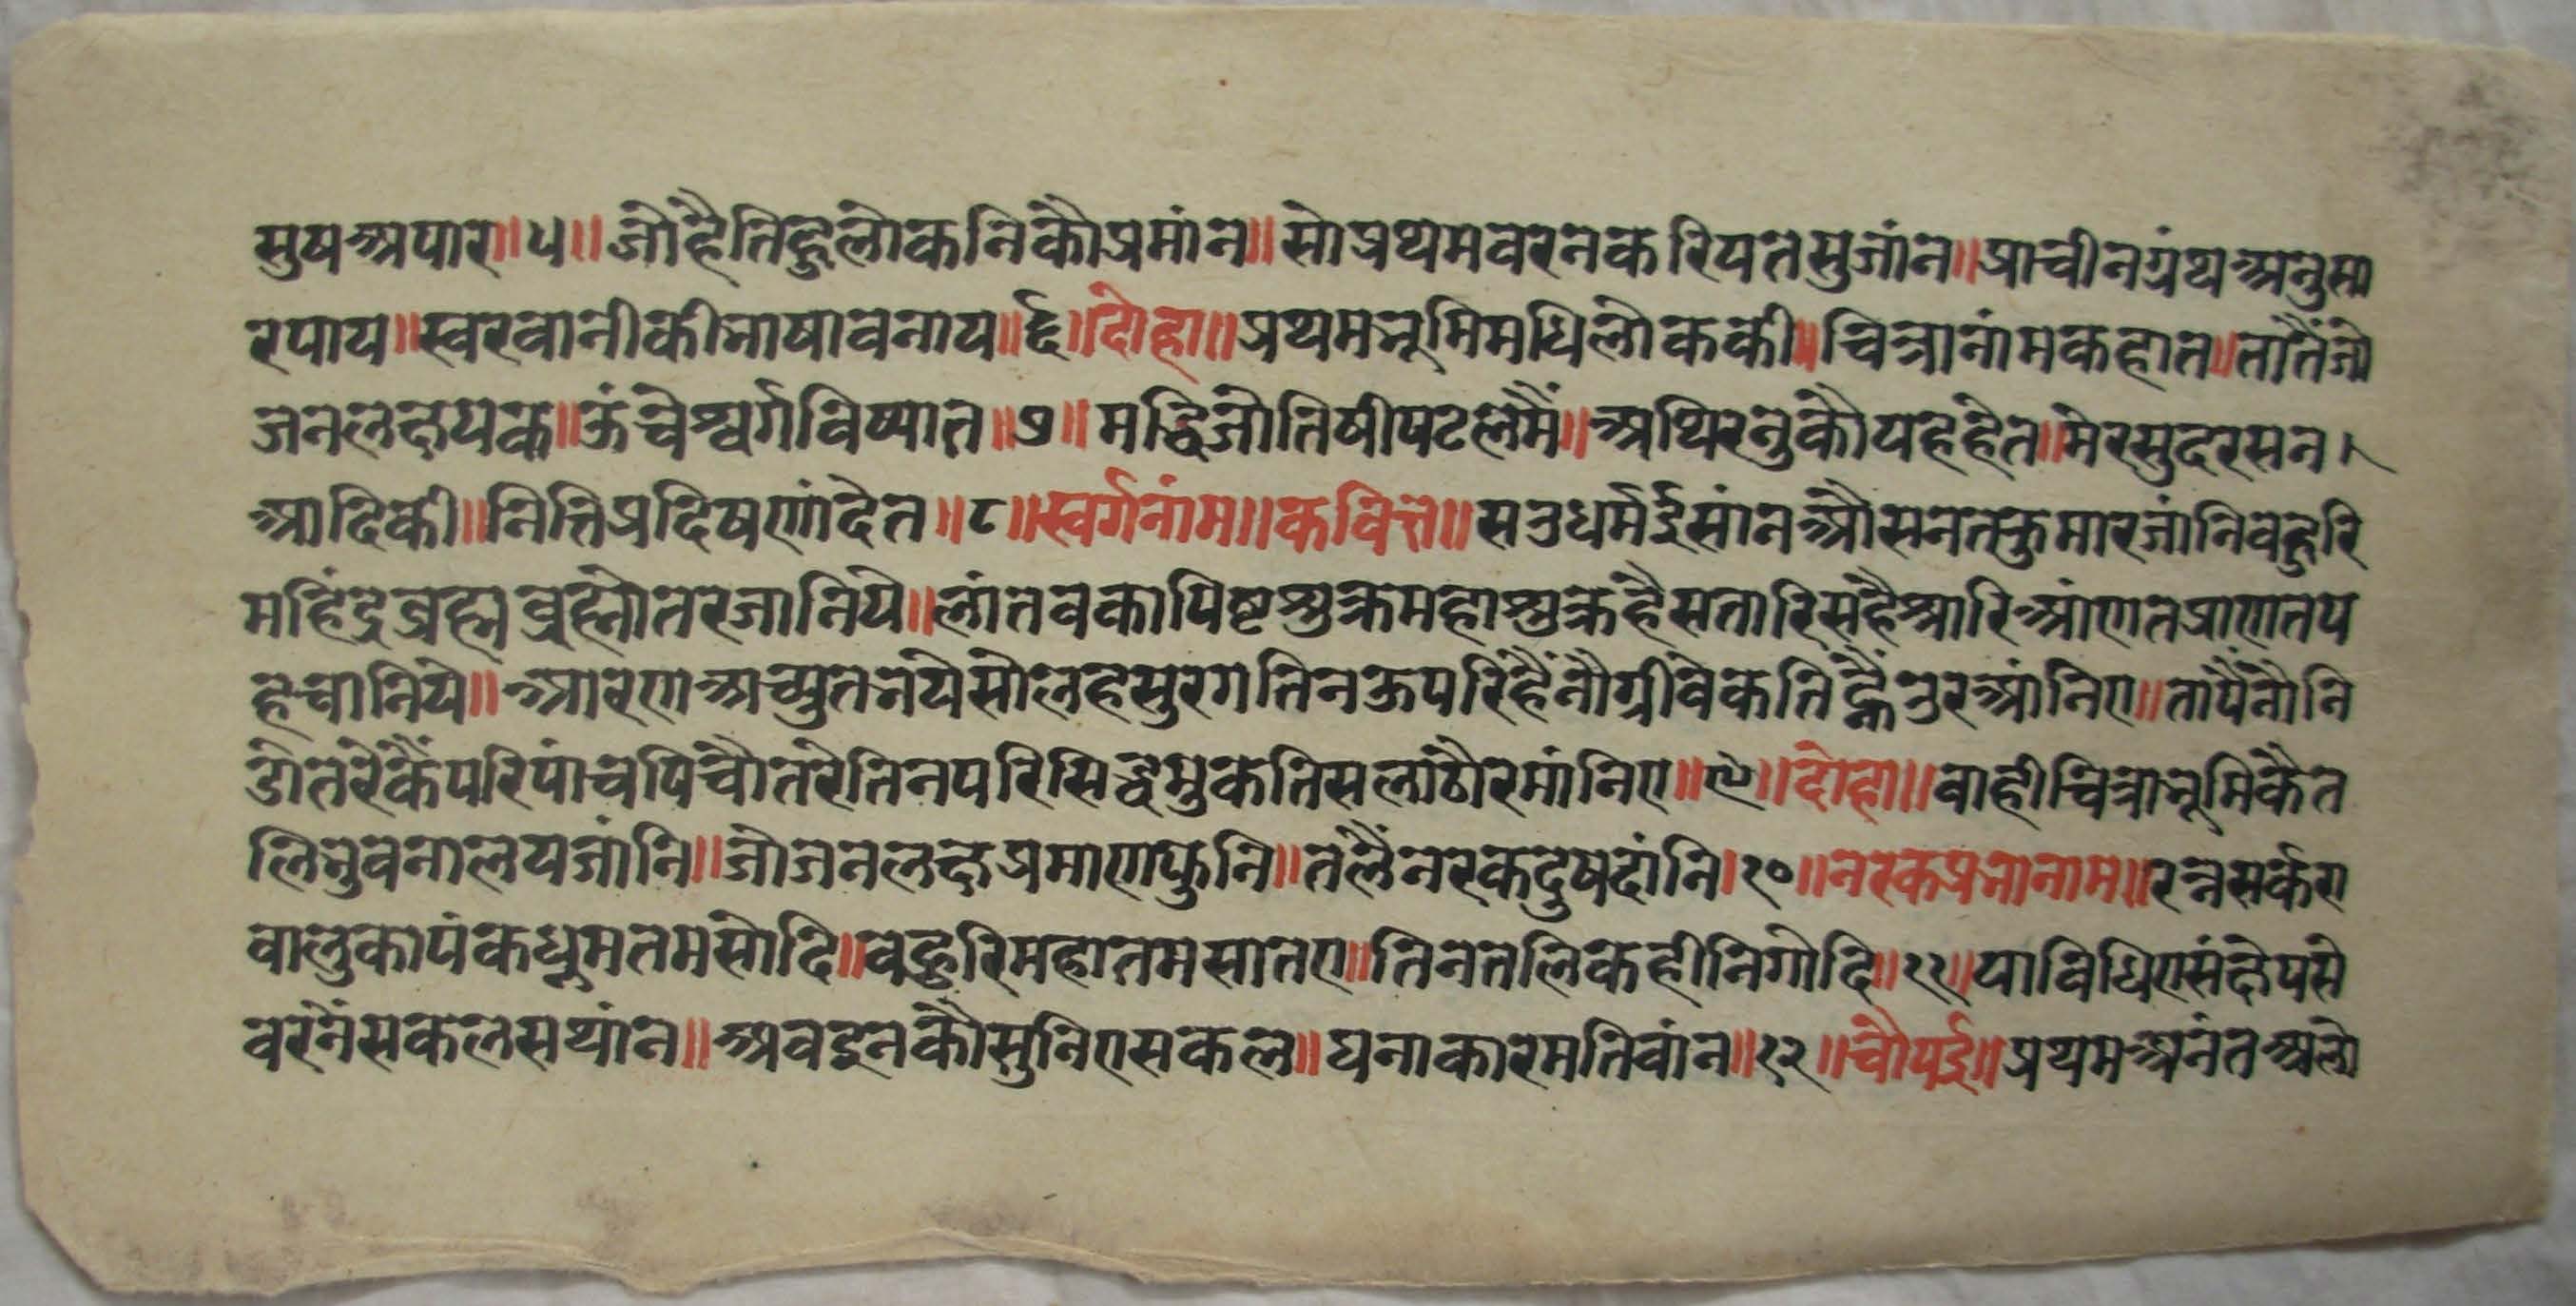 सुषअपार॥५॥जोहैतिहुलोकनिकौप्रमांन॥सोप्रथमवरनकरियतसुजांन॥प्राचीनग्रंथअनुसा
रपाय॥स्वरवानीकीभाषावनाय॥६॥दोहा॥प्रथमभूमिमधिलोककी॥चित्रानांमकहात॥तातैंजो
जनलक्षयक॥ऊंचेश्वर्गविष्यात॥७॥मद्धिजोतिषीपटलमैं॥अथिरनुकौयहहेत॥मेरसुदरसन।
आदिकी॥नित्तिप्रदिषणांदेत॥८॥स्वर्गनांम॥कवित्त॥सउधर्मईसांनऔसनतकुमारजांनिवहुरि
महिंद्रब्रह्मब्रह्मोतरजानिये॥लांतवकापिष्टशुक्रमहाशुक्रहैसतारिसहैश्रारिआंणतप्राणतप
हचानिये॥आरणअच्युतभयेसोलहसुरगतिनऊपरिहैंनौग्रीवेकतिह्नैंउरआंनिए॥तापैंनौनि
डोतरेकैंपरिपांचपिचौतरेतिनपरिसिद्धमुकतिसलांठौरमांनिए॥९॥दोहा॥वाहीचित्राभूमिकैत
लिभुवनालयजांनि॥जोजनलक्षप्रमाणफुनि॥तलैंनरकदुषदांनि।१०॥नरकप्रभानाम॥रत्नसर्करा
वालुकापंकधूमतमसोदि॥वहुरिमहातमसातए॥तिनतलिकहीनिगोदि॥११॥याविधिएसंक्षेपसे
वरनैंसकलसथांन॥अवइनकौसुनिएसकल॥घनाकारमतिवांन॥१२॥चौपई॥प्रथमअनंतअलो